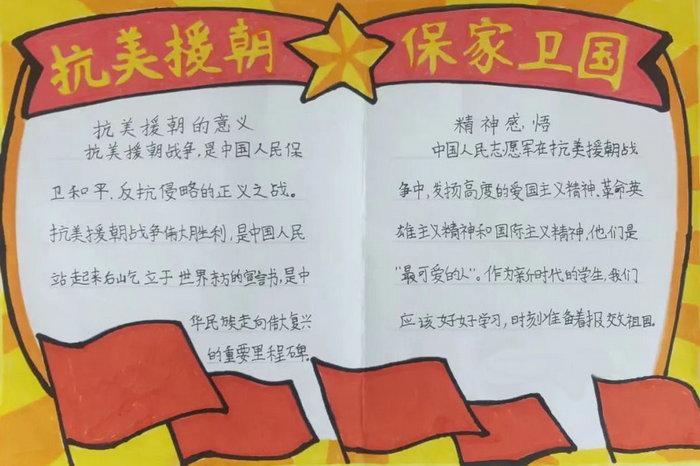 抗美援朝 保家卫国
抗美援朝的意义
抗美援朝战争,是中国人民保
卫和平、反抗侵略的正义之战。
抗美援朝战争伟大胜利,是中国人民
站起来后屹立于世界东方的宣言书,是中
华民族走向伟大复兴
的重要里程碑。
精神感悟
中国人民志愿军在抗美援朝战
争中,发扬高度的爱国主义精神、革命英
雄主义精神和国际主义精神,他们是
"最可爱的人"。作为新时代的学生,我们
应该好好学习,时刻准备着报效祖国。